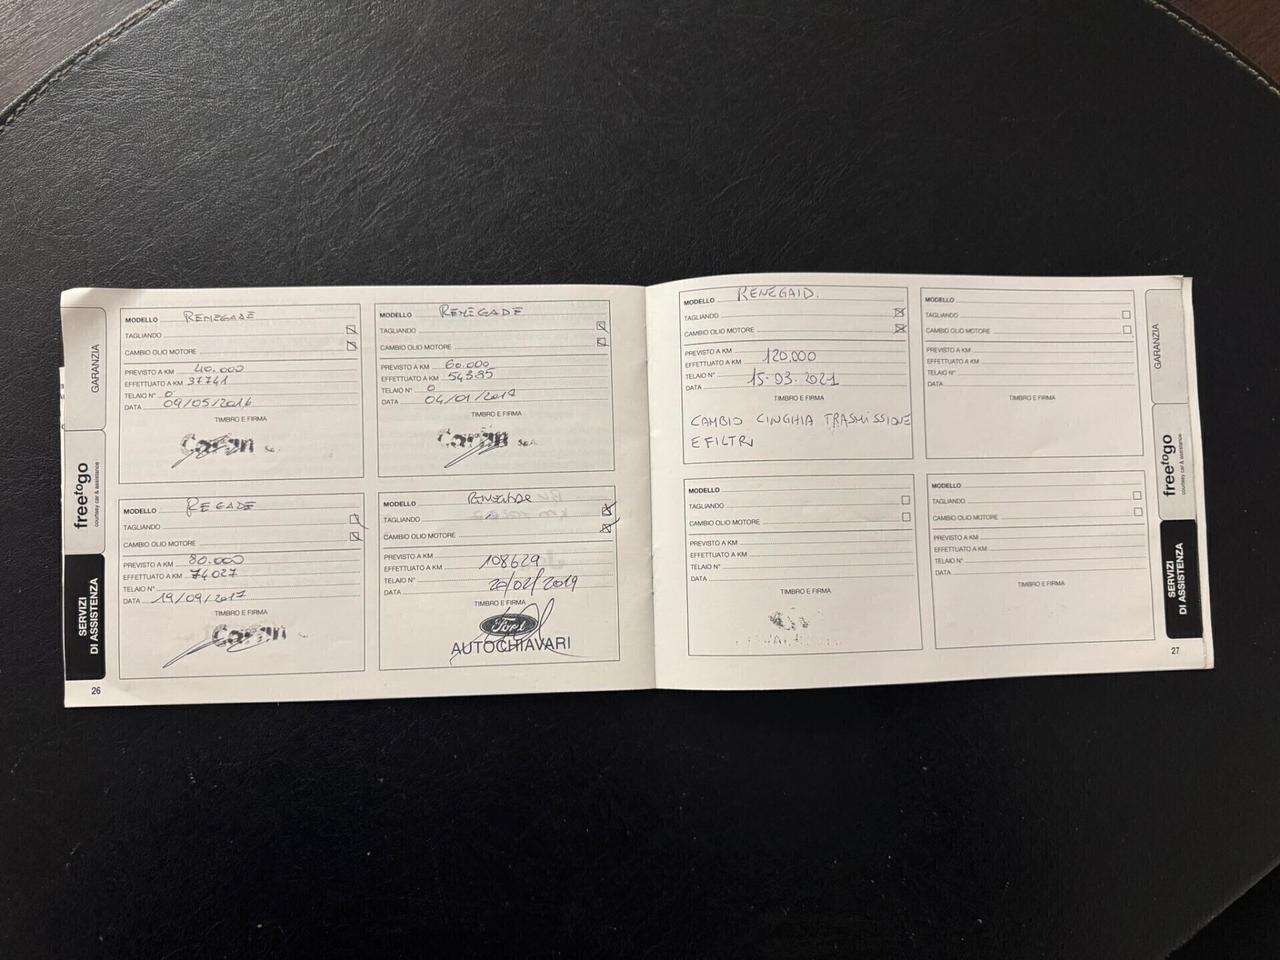 GARANZIA
freetogo
courtesy car & assistance
SERVIZI
DI ASSISTENZA
26
MODELLO RENEGADE
TAGLIANDO
CAMBIO OLIO MOTORE
PREVISTO A KM 40.000
EFFETTUATO A KM 37741
TELAIO N° 0
DATA 09/05/2016
TIMBRO E FIRMA
MODELLO RENEGADE
TAGLIANDO
CAMBIO OLIO MOTORE
PREVISTO A KM 60.000
EFFETTUATO A KM 54385
TELAIO N° 0
DATA 04/01/2017
TIMBRO E FIRMA
MODELLO REGADE
TAGLIANDO
CAMBIO OLIO MOTORE
PREVISTO A KM 80.000
EFFETTUATO A KM 74027
TELAIO N°
DATA 19/09/2017
TIMBRO E FIRMA
MODELLO RENEGADE
TAGLIANDO
CAMBIO OLIO MOTORE
PREVISTO A KM
EFFETTUATO A KM 108629
TELAIO N°
DATA 20/02/2019
TIMBRO E FIRMA
Ford
AUTOCHIAVARI
MODELLO RENEGAID.
TAGLIANDO
CAMBIO OLIO MOTORE
PREVISTO A KM
EFFETTUATO A KM 120,000
TELAIO N°
DATA 15-03-2021
TIMBRO E FIRMA
CAMBIO CINGHIA TRASMISSIONE
E FILTRI
MODELLO
TAGLIANDO
CAMBIO OLIO MOTORE
PREVISTO A KM
EFFETTUATO A KM
TELAIO N°
DATA
TIMBRO E FIRMA
MODELLO
TAGLIANDO
CAMBIO OLIO MOTORE
PREVISTO A KM
EFFETTUATO A KM
TELAIO N°
DATA
TIMBRO E FIRMA
MODELLO
TAGLIANDO
CAMBIO OLIO MOTORE
PREVISTO A KM
EFFETTUATO A KM
TELAIO N°
DATA
TIMBRO E FIRMA
GARANZIA
freetogo
courtesy car & assistance
SERVIZI
DI ASSISTENZA
27